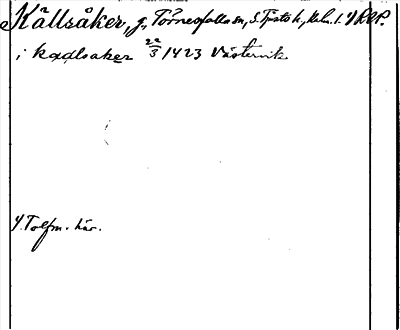 Källsåker, g., Törnesfalla sn, S. Tjusts h., Kalm. l. SRAP.
i kaalsaker 22/3 1423 Västervik
Y. Tolfm. här.